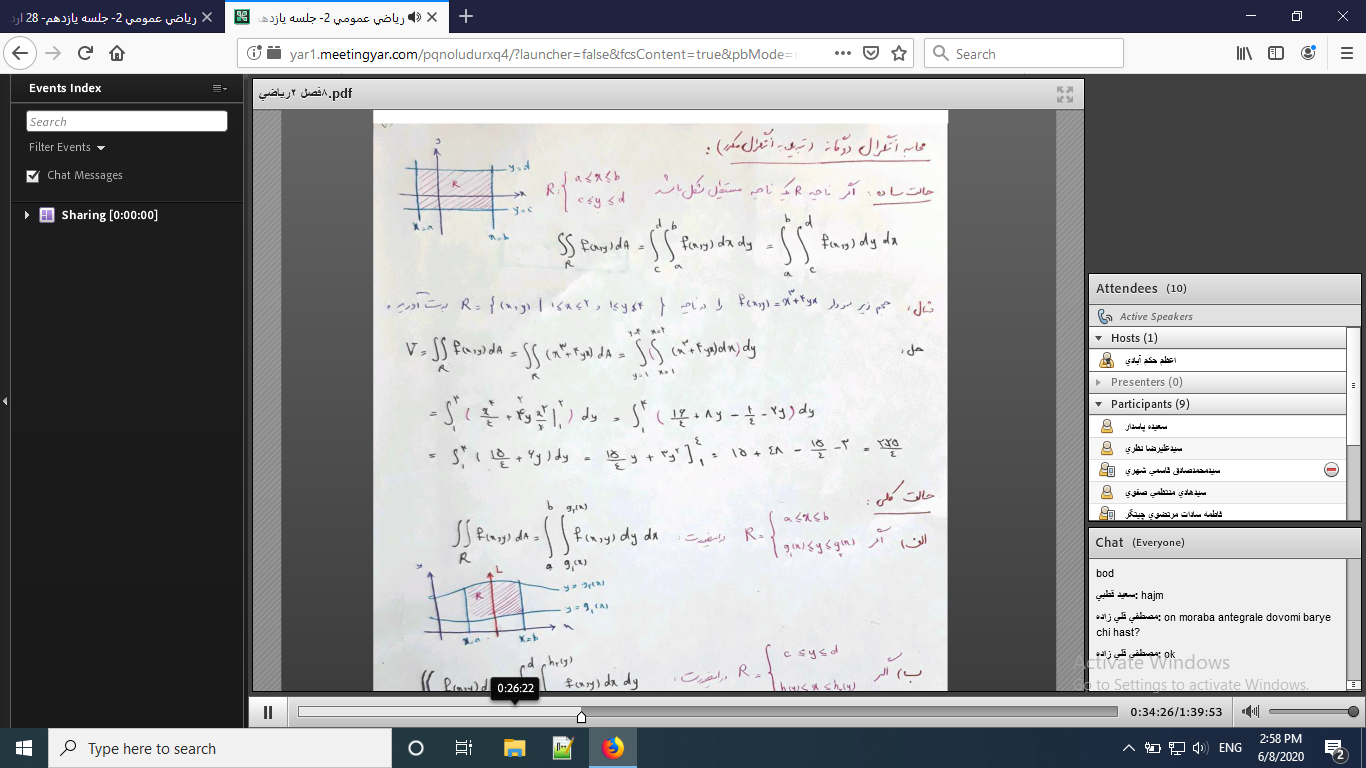 رياضي عمومي 2- جلسه يازدهم- 28 ارد
رياضي عمومي 2- جلسه يازدهم
yar1.meetingyar.com/pqnoludurxq4/?launcher=false&fcsContent=true&pbMode=
Search
Events Index
Search
Filter Events
Chat Messages
Sharing [0:00:00]
۸فصل ۲رياضي.pdf
محاسبه انتگرال دوگانه (تبدیل به انتگرال مکرر):
حالت ساده: اگر ناحیه R یک ناحیه مستطیل شکل باشد R: { a≤x≤b
c≤y≤d
y
y=d
R
x
y=c
x=a x=b
∬_R f(x,y)dA = ∫_c^d ∫_a^b f(x,y) dx dy = ∫_a^b ∫_c^d f(x,y) dy dx
مثال: حجم زیر نمودار f(x,y)=x^۳+۴yx را در ناحیه R={(x,y) | ۱≤x≤۲ , ۱≤y≤۴ } بدست آورید.
حل:
V=∬_R f(x,y)dA = ∬_R (x^۳+۴yx) dA = ∫_{y=۱}^{y=۴} (∫_{x=۱}^{x=۲} (x^۳+۴yx)dx) dy
= ∫_۱^۴ ( x^۴/٤ + ۴y x^۲/۲ |_۱^۲ ) dy = ∫_۱^۴ ( ۱۶/٤ + ۸y − ۱/٤ − ۲y) dy
= ∫_۱^۴ ( ۱۵/٤ + ۶y) dy = ۱۵/٤ y + ۳y^۲ ]_۱^٤ = ۱۵ + ٤۸ − ۱۵/٤ − ۳ = ۲۲۵/٤
حالت کلی:
الف) اگر R= { a≤x≤b
g₁(x)≤y≤g₂(x)
دراینصورت: ∬_R f(x,y)dA = ∫_a^b ∫_{g₁(x)}^{g₂(x)} f(x,y) dy dx
y
L
y=g₂(x)
R
y=g₁(x)
x
x=a x=b
ب) اگر R= { c≤y≤d
h₁(y)≤x≤h₂(y)
دراینصورت: f(x,y)dA d h₂(y) f(x,y) dx dy
0:26:22
0:34:26/1:39:53
Attendees (10)
Active Speakers
Hosts (1)
اعظم حكم آبادي
Presenters (0)
Participants (9)
سعيده پاسدار
سيدعليرضا نظري
سيدمحمدصادق قاسمي شهري
سيدهادي منتظمي صفوي
فاطمه سادات مرتضوي چينگر
Chat (Everyone)
bod
سعيد قطبي: hajm
مصطفي قلي زاده: on moraba antegrale dovomi barye
chi hast?
مصطفي قلي زاده: ok
Activate Windows
Go to Settings to activate Windows.
Type here to search
ENG
2:58 PM
6/8/2020
2